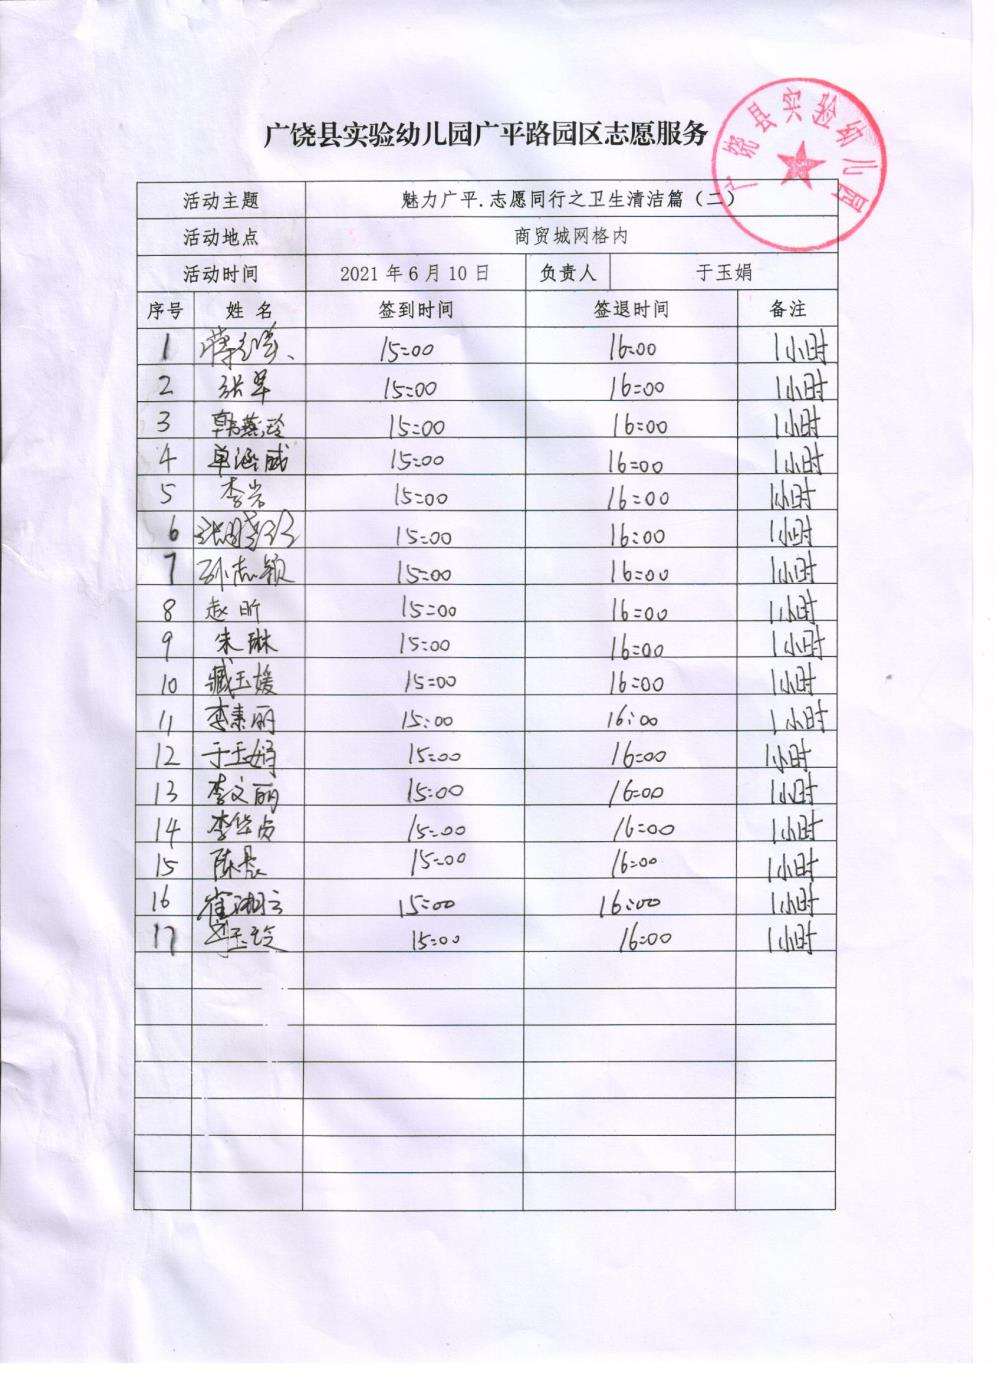 广饶县实验幼儿园广平路园区志愿服务
广饶县实验幼儿园
活动主题 魅力广平.志愿同行之卫生清洁篇（二）
活动地点 商贸城网格内
活动时间 2021年6月10日 负责人 于玉娟
序号 姓名 签到时间 签退时间 备注
1 15:00 16:00 1小时
2 张军 15:00 16:00 1小时
3 韩燕玲 15:00 16:00 1小时
4 单涵威 15:00 16:00 1小时
5 李岩 15:00 16:00 1小时
6 15:00 16:00 1小时
7 孙志颖 15:00 16:00 1小时
8 赵昕 15:00 16:00 1小时
9 朱琳 15:00 16:00 1小时
10 臧玉媛 15:00 16:00 1小时
11 李素丽 15:00 16:00 1小时
12 于玉娟 15:00 16:00 1小时
13 李文丽 15:00 16:00 1小时
14 李华贞 15:00 16:00 1小时
15 陈晨 15:00 16:00 1小时
16 崔湘云 15:00 16:00 1小时
17 15:00 16:00 1小时